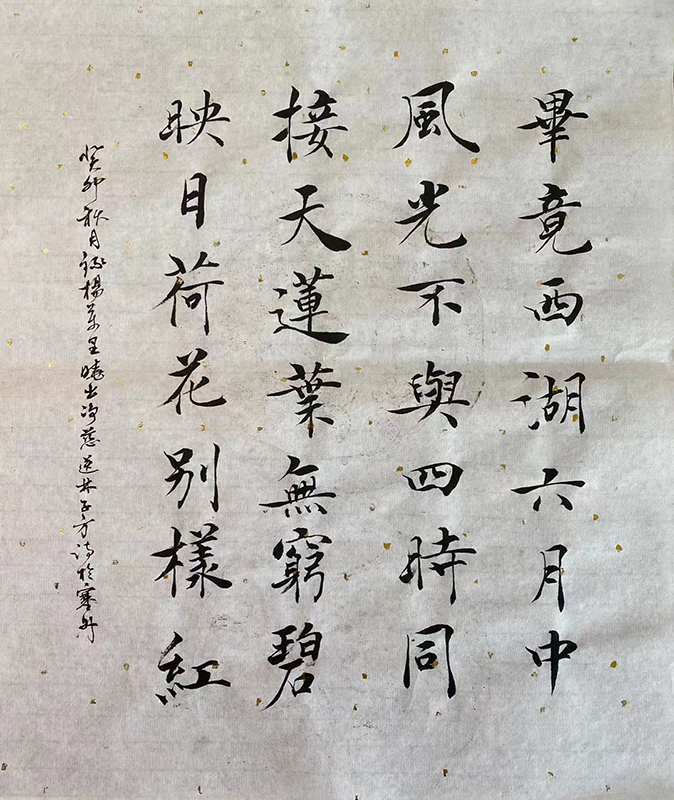 畢竟西湖六月中
風光不與四時同
接天蓮葉無窮碧
映日荷花别樣紅
癸卯秋月錄楊萬里曉出净慈送林子方詩於塞外